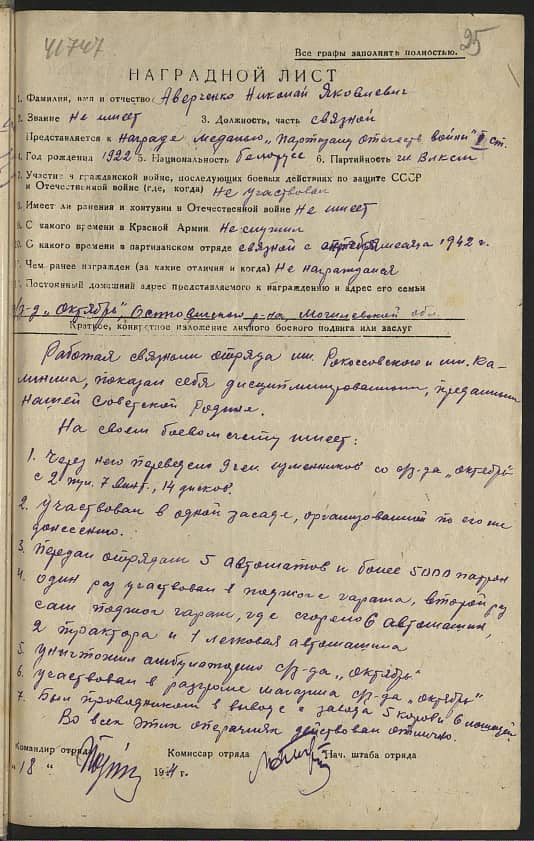 41747
Все графы заполнять полностью. 25
НАГРАДНОЙ ЛИСТ
1. Фамилия, имя и отчество Аверченко Николай Яковлевич
2. Звание Не имеет 3. Должность, часть связной
Представляется к награде медалью „Партизану отечеств войны" II ст.
4. Год рождения 1922 5. Национальность белорусс 6. Партийность чл ВЛКСМ
7. Участие в гражданской войне, последующих боевых действиях по защите СССР
и Отечественной войне (где, когда) Не участвовал
8. Имеет ли ранения и контузии в Отечественной войне Не имеет
9. С какого времени в Красной Армии Не служил
10. С какого времени в партизанском отряде связной с месяца 1942 г.
11. Чем ранее награжден (за какие отличия и когда) Не награждался
12. Постоянный домашний адрес представляемого к награждению и адрес его семьи
с/з-д „Октябрь", р-на, Могилевской обл.
Краткое, конкретное изложение личного боевого подвига или заслуг
Работая связным отряда им. Рокоссовского и им. Ка-
линина, показал себя дисциплинированным, преданным
нашей Советской Родине.
На своем боевом счету имеет:
1. Через него переведено 9 чел. изменников со с/з-да „Октябрь"
с 2 пул. 7 винт., 14 дисков.
2. Участвовал в одной засаде, организованной по его же
донесению.
3. Передал отрядам 5 автоматов и более 5000 патрон
4. Один раз участвовал в поджоге гаража, второй раз
сам поджог гараж, где сгорело 6 автомашин,
2 трактора и 1 легковая автомашина
5. Уничтожил амбулаторию с/з-да „Октябрь"
6. Участвовал в разгроме с/з-да „Октябрь"
7. Был проводником в выводе с завода 5 коров и 6 лошадей
Во всех этих операциях действовал отлично.
Командир отряда Комиссар отряда Нач. штаба отряда
"18" 194 г.